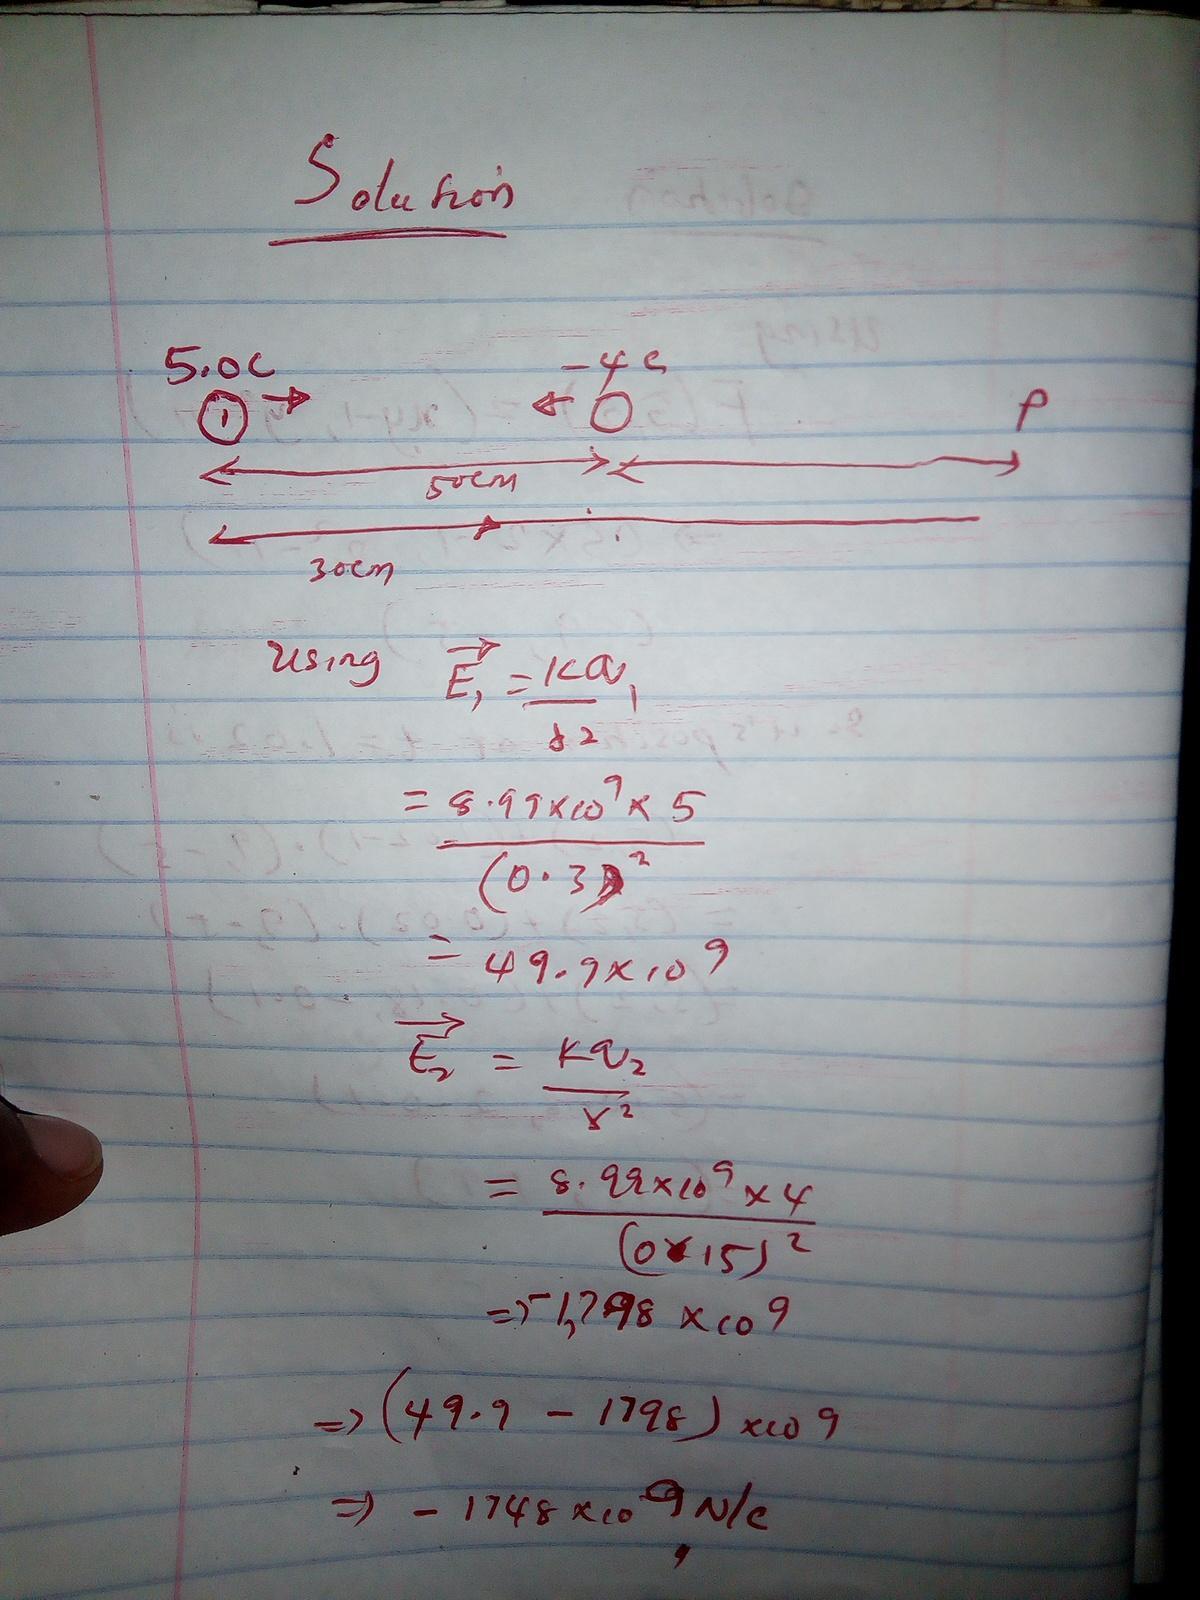 Solution
5.0C -4C
1 P
50cm
30cm
Using E₁ = kq₁
r2
= 8.99x10⁹ x 5
(0.3)²
= 49.9x10⁹
E₂ = kq₂
r²
= 8.99x10⁹ x 4
(0.15)²
=> -1,798 x 10⁹
=> (49.9 - 1798) x10⁹
=> -1748 x10⁹ N/C